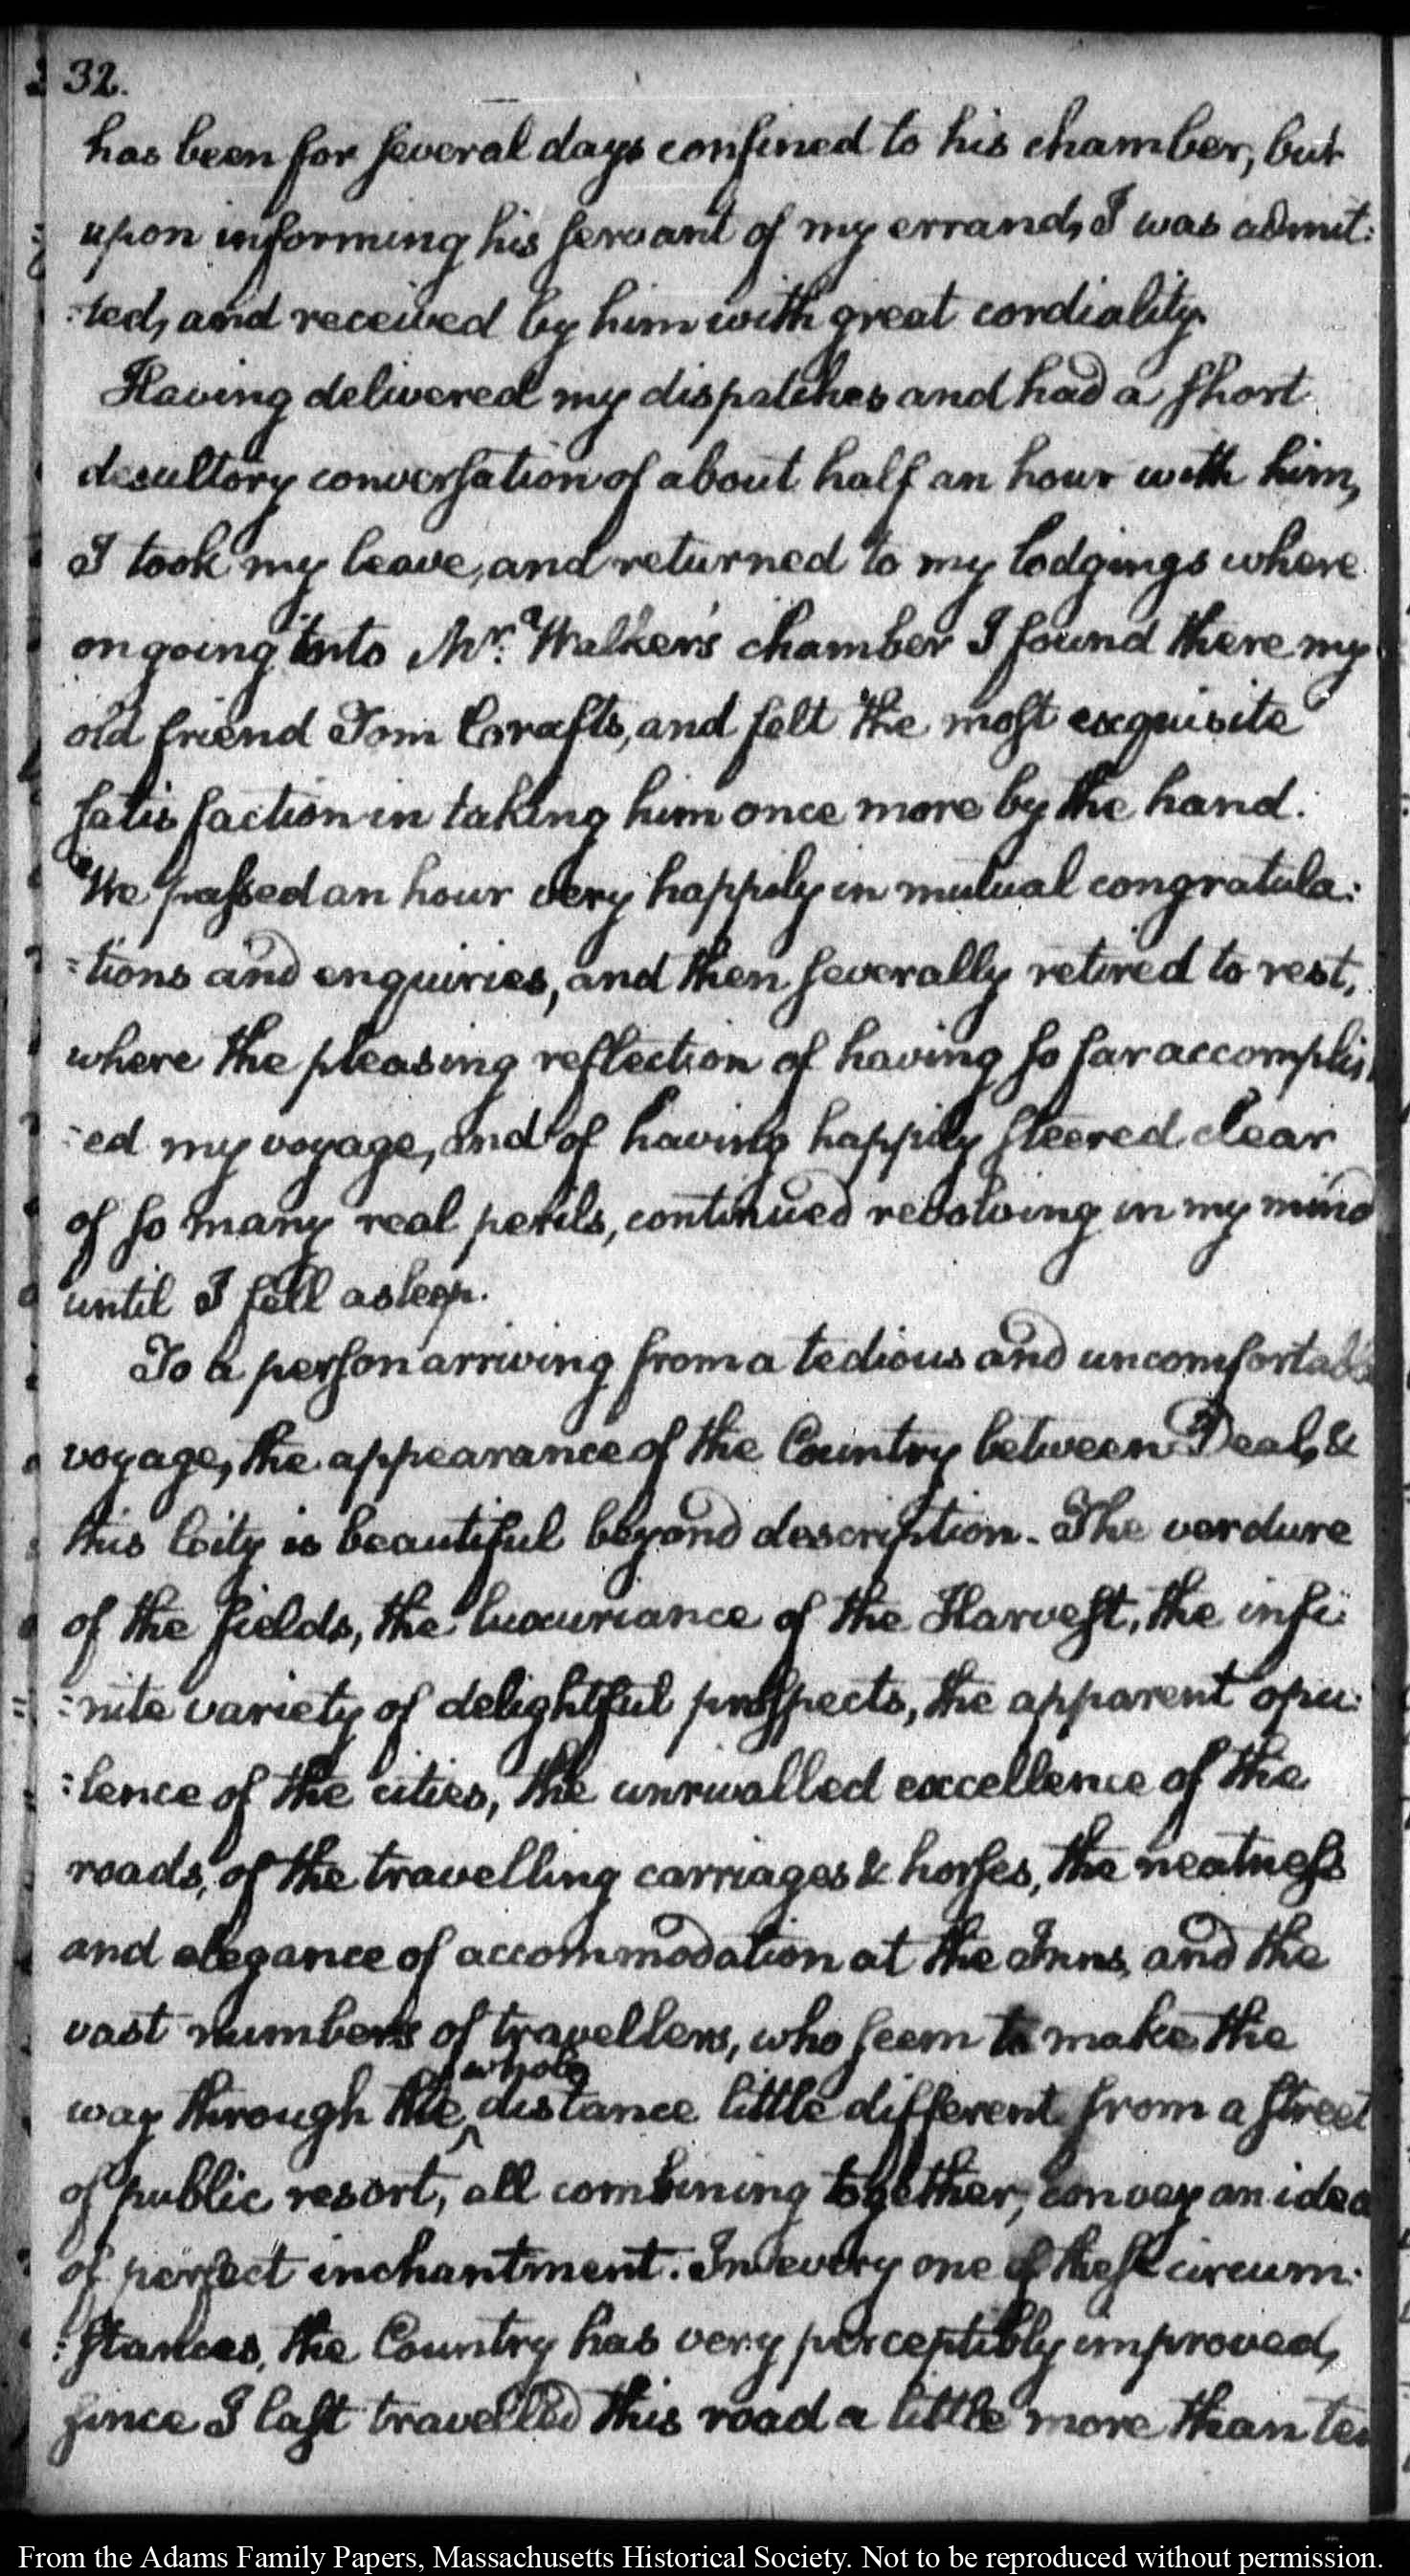 32.
has been for several days confined to his chamber, but
upon informing his servant of my errand, I was admit:
:ted, and received by him with great cordiality.
Having delivered my dispatches and had a short
desultory conversation of about half an hour with him,
I took my leave, and returned to my lodgings where
on going into Mr. Walker's chamber I found there my
old friend Tom Crafts, and felt the most exquisite
satisfaction in taking him once more by the hand.
We passed an hour very happily in mutual congratula:
:tions and enquiries, and then severally retired to rest,
where the pleasing reflection of having so far accomplish
:ed my voyage, and of having happily steered clear
of so many real perils, continued revolving in my mind
until I fell asleep.
To a person arriving from a tedious and uncomfortable
voyage, the appearance of the Country between Deal, &
this City is beautiful beyond description. The verdure
of the fields, the luxuriance of the Harvest, the infi:
:nite variety of delightful prospects, the apparent opu:
:lence of the cities, the unrivalled excellence of the
roads, of the travelling carriages & horses, the neatness
and elegance of accommodation at the Inns, and the
vast numbers of travellers, who seem to make the
way through the whole distance little different from a street
of public resort, all combining together, convey an idea
of perfect inchantment. In every one of these circum:
:stances, the Country has very perceptibly improved,
since I last travelled this road a little more than ten
From the Adams Family Papers, Massachusetts Historical Society. Not to be reproduced without permission.